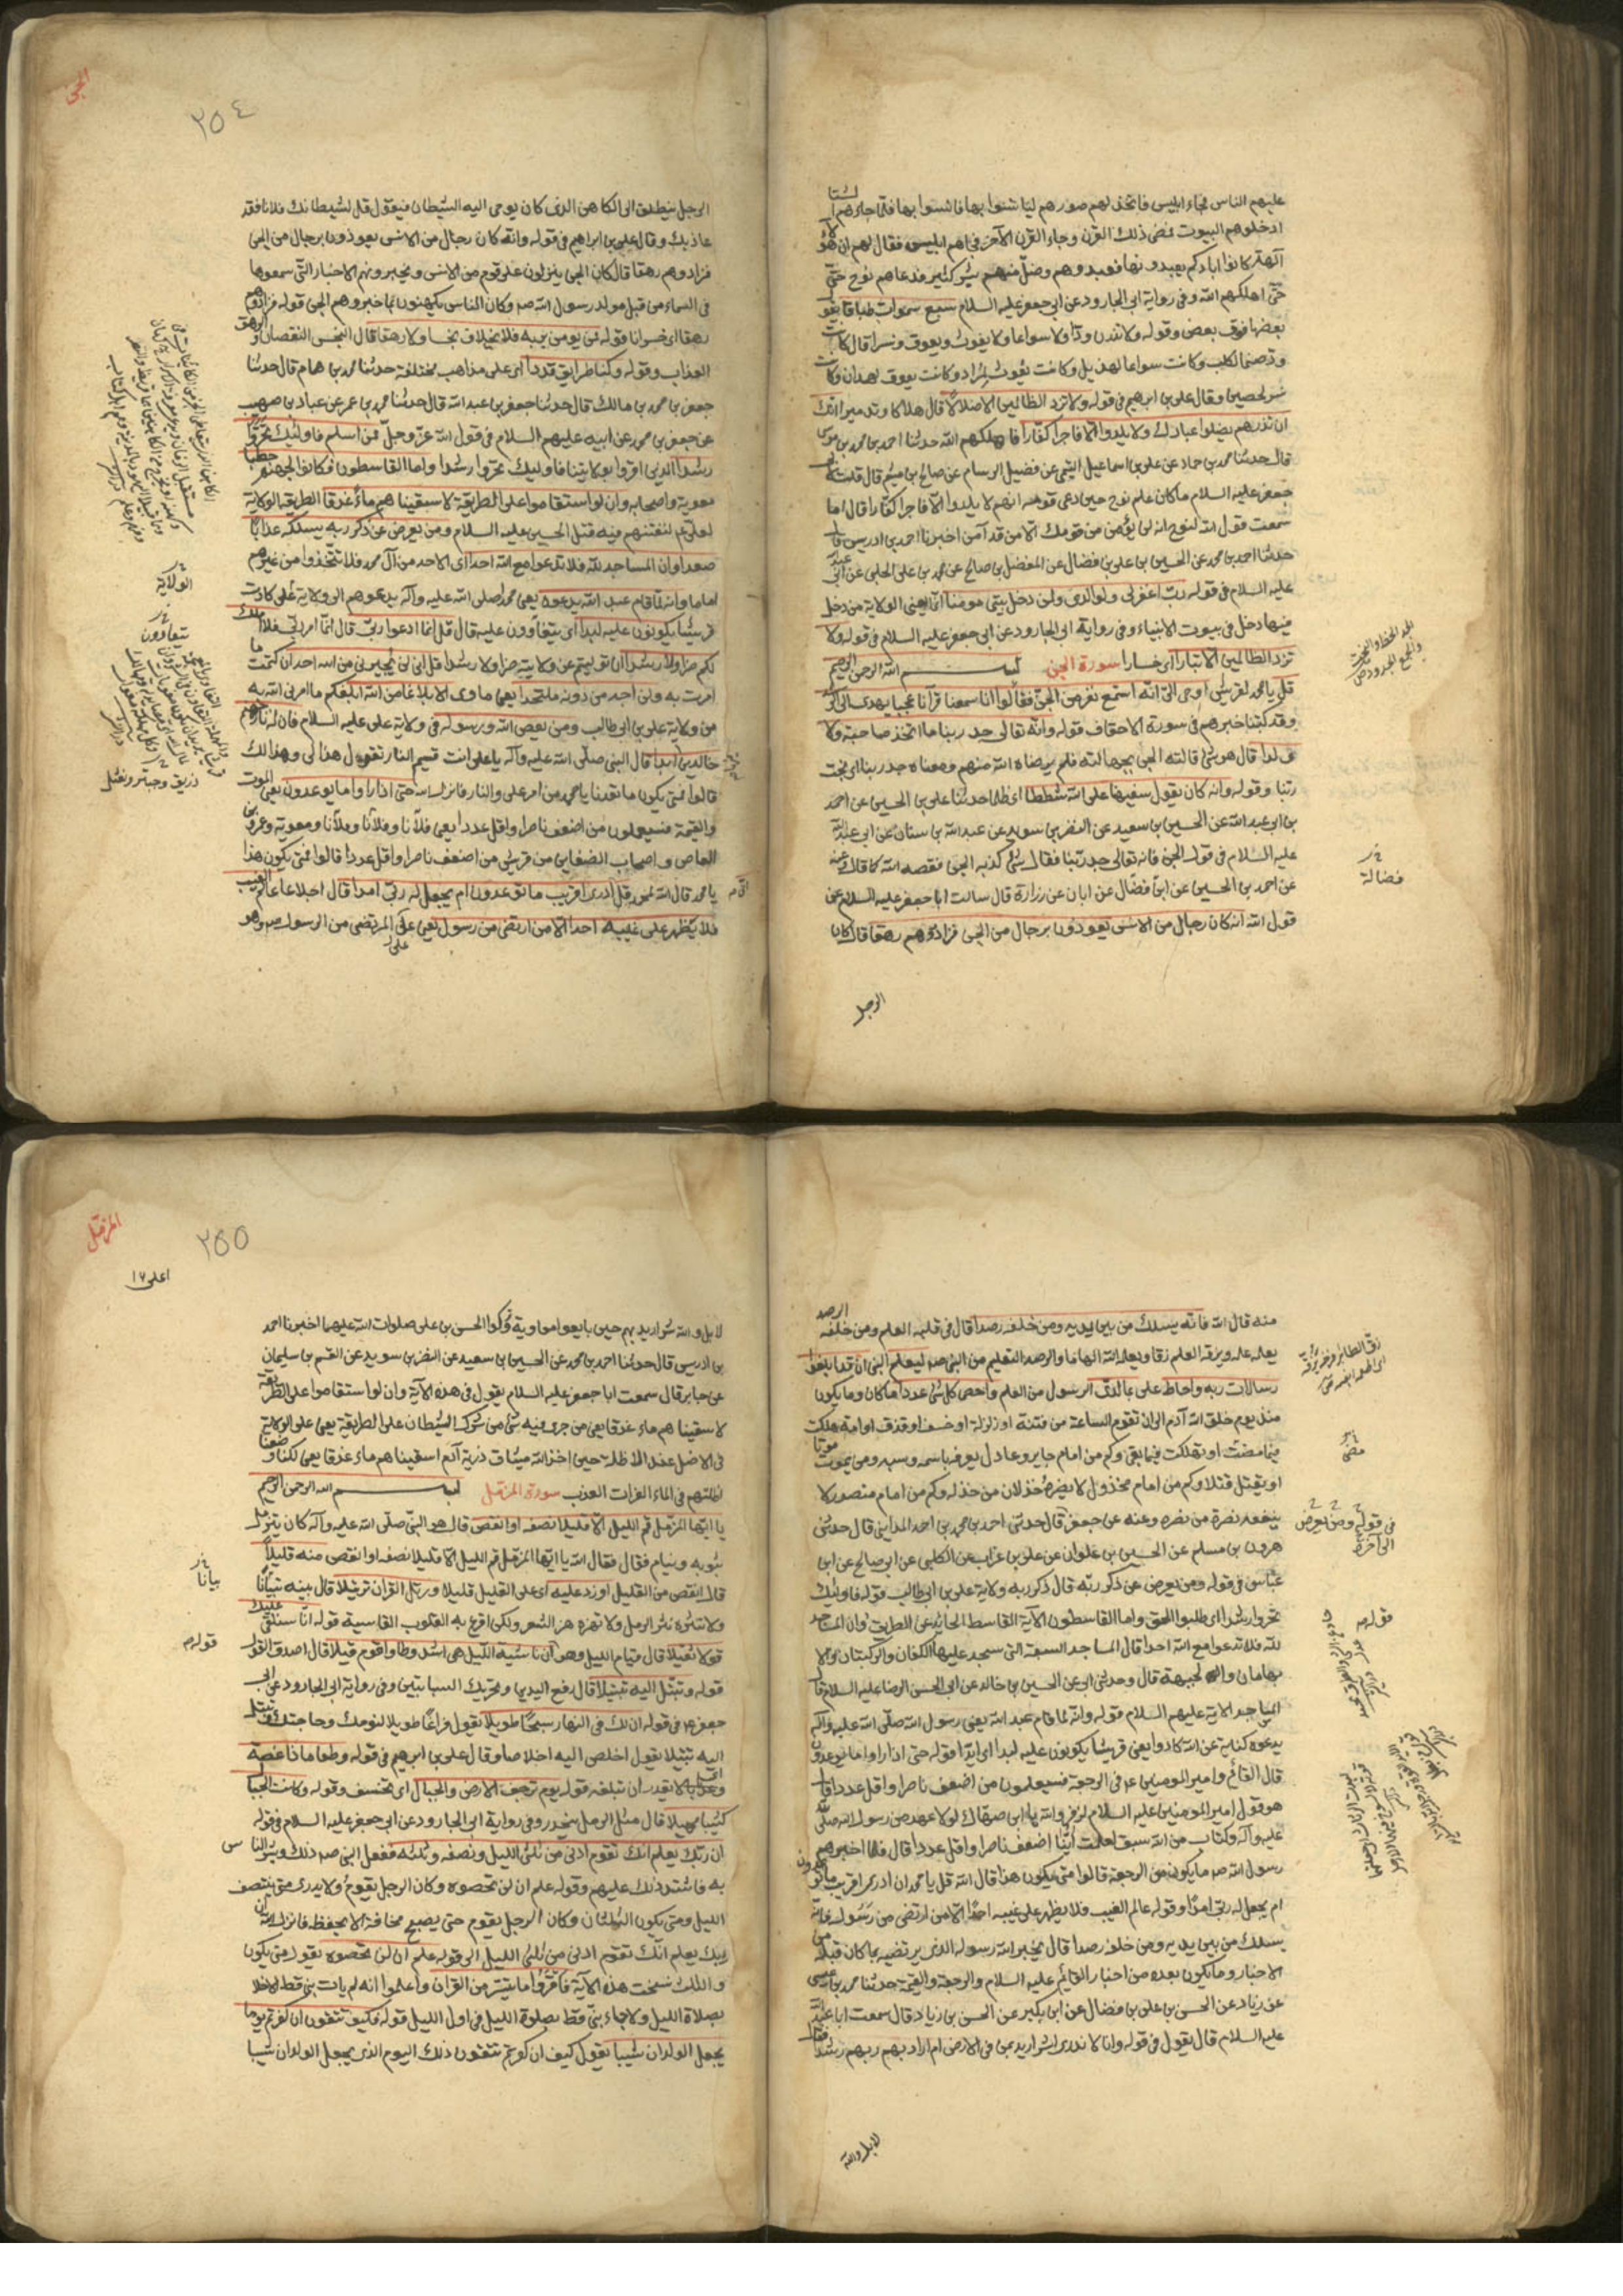 عليهم الناس فجاء ابليس فاتخذ لهم صورهم ليأنسوا بها فانسوا بها فلما جاءهم الشتا
ادخلوهم البيوت فمضى ذلك القرن وجاء القرن الآخر فجاءهم ابليس فقال لهم ان هؤلاء
آلهة كانوا اباؤكم يعبدونها فعبدوهم وضل منهم بشر كثير فدعا عليهم نوح حتى
حتى اهلكهم الله وفي رواية ابي الجارود عن ابي جعفر عليه السلام سبع سموات طباقا يقول
بعضها فوق بعض وقوله ولا تذرن ودا ولا سواعا ولا يغوث ويعوق ونسرا قال كانت
ود صنما لكلب وكانت سواعا لهذيل وكانت يغوث لمراد وكانت يعوق لهمدان وكانت
نسر لحصين وقال علي بن ابراهيم في قوله ولا تزد الظالمين الا ضلالا قال هلاكا وتدميرا انك
ان تذرهم يضلوا عبادك ولا يلدوا الا فاجرا كفارا فاهلكهم الله حدثنا احمد بن محمد بن موسى
قال حدثنا محمد بن حماد عن علي بن اسماعيل التيمي عن فضيل الرسام عن صالح بن ميثم قال قلت لابي
جعفر عليه السلام ما كان علم نوح حين دعى قومه انهم لا يلدوا الا فاجرا كفارا قال اما
سمعت قول الله لنوح انه لن يؤمن من قومك الا من قد آمن اخبرنا احمد بن ادريس قال
حدثنا احمد بن محمد عن الحسين بن علي بن فضال عن المفضل بن صالح عن محمد بن علي الحلبي عن ابي عبد الله
عليه السلام في قوله رب اغفر لي ولوالدي ولمن دخل بيتي مومنا انما يعني الولاية من دخل
فيها دخل في بيوت الانبياء وفي رواية ابي الجارود عن ابي جعفر عليه السلام في قوله ولا
تزد الظالمين الا تبارا اي خسارا سورة الجن بسم الله الرحمن الرحيم
قل يا محمد لقريش اوحي الي انه استمع نفر من الجن فقالوا انا سمعنا قرآنا عجبا يهدي الى الرشد
وقد كتبنا خبرهم في سورة الاحقاف قوله وانه تعالى جد ربنا ما اتخذ صاحبة ولا
ولدا قال هو شئ قالته الجن بجهالة فلم يرضاه الله منهم ومعناه جد ربنا اي بخت
ربنا وقوله وانه كان يقول سفيهنا على الله شططا اي ظلما حدثنا علي بن الحسين عن احمد
بن ابي عبد الله عن الحسين بن سعيد عن النضر بن سويد عن عبد الله بن سنان عن ابي عبد الله
عليه السلام في قول الجن وانه تعالى جد ربنا فقال شئ كذبه الجن فقصه الله كما قال عنه
عن احمد بن الحسين عن ابن فضال عن ابان عن زرارة قال سالت ابا جعفر عليه السلام عن
قول الله انه كان رجال من الانس يعوذون برجال من الجن فزادوهم رهقا قال كان
الرجل
فضالة
الجن
٢٥٤
الرجل ينطلق الى الكاهن الذي كان يوحى اليه الشيطان فيقول قل لشيطانك فلانا فقد
عاذ بك وقال علي بن ابراهيم في قوله وانه كان رجال من الانس يعوذون برجال من الجن
فزادوهم رهقا قال كان الجن ينزلون على قوم من الانس ويخبرونهم الاخبار التي سمعوها
في السماء من قبل مولد رسول الله صم وكان الناس يكهنون بما خبروهم الجن قوله فزادوهم
رهقا اي خسرانا قوله فمن يومن بربه فلا يخاف بخسا ولا رهقا قال البخس النقصان والرهق
العذاب وقوله وكنا طرايق قددا اي على مذاهب مختلفة حدثنا محمد بن همام قال حدثنا
جعفر بن محمد بن مالك قال حدثنا جعفر بن عبد الله قال حدثنا محمد بن عمر عن عباد بن صهيب
عن جعفر بن محمد عن ابيه عليهم السلام في قول الله عز وجل فمن اسلم فاولئك تحروا
رشدا الذين اقروا بولايتنا فاوليك تحروا رشدا واما القاسطون فكانوا لجهنم حطبا
معوية واصحابه وان لو استقاموا على الطريقة لاسقيناهم ماء غدقا الطريقة الولاية
لعلي ع لنفتنهم فيه قتل الحسين عليه السلام ومن يعرض عن ذكر ربه يسلكه عذابا
صعدا وان المساجد لله فلا تدعوا مع الله احدا اي الاحد من آل محمد فلا تتخذوا من غيرهم
اماما وانه لما قام عبد الله يدعوه يعني محمد صلى الله عليه وآله يدعوهم الى ولاية علي كادت
قريش يكونون عليه لبدا اي يتعاوون عليه قال قل انما ادعوا ربي قال انما امر ربي فلا املك
لكم ضرا ولا رشدا ان توليتم عن ولايته ضرا ولا رشدا قل اني لن يجيرني من الله احد ان كتمت ما
امرت به ولن اجد من دونه ملتحدا يعني ماوى الا بلاغا من الله ابلغكم ما امرني الله به
من ولاية علي بن ابي طالب ومن يعص الله ورسوله في ولاية علي عليه السلام فان له نار جهنم
خالدين ابدا قال النبي صلى الله عليه وآله يا علي انت قسيم النار تقول هذا لي وهذا لك
قالوا فمتى يكون ما تعدنا يا محمد من امر علي والنار فانزل الله حتى اذا راوا ما يوعدون يعني الموت
والقيمة فسيعلمون من اضعف ناصرا واقل عددا يعني فلانا وفلانا وفلانا ومعوية وعمرو بن
العاص واصحاب الضغاين من قريش من اضعف ناصرا واقل عددا قالوا فمتى يكون هذا
يا محمد قال الله لمحمد قل ان ادري اقريب ما توعدون ام يجعل له ربي امدا قال اجلا عالم الغيب
فلا يظهر على غيبه احدا الا من ارتضى من رسول يعني علي المرتضى من الرسول صم وهو
الولاية
يتعاوون
زريق وحبتر ونعثل
منه قال الله فانه يسلك من بين يديه ومن خلفه رصدا قال في قلبه العلم ومن خلفه الرصد
يعلمه علمه ويزقه العلم زقا ويعلمه الله الهاما والرصد التعليم من النبي صم ليعلم النبي ان قد ابلغوا
رسالات ربه واحاط علي بما لدى الرسول من العلم واحصى كل شئ عددا ما كان وما يكون
منذ يوم خلق الله آدم الى ان تقوم الساعة من فتنة او زلزلة او خسف او قذف او امة هلكت
فيما مضت او تهلك فيما بقي وكم من امام جاير وعادل يعرفه باسمه ونسبه ومن يموت موتا
او يقتل قتلا وكم من امام مخذول لا يضره خذلان من خذله وكم من امام منصور لا
ينفعه نصرة من نصره وعنه عن جعفر قال حدثني احمد بن محمد بن احمد المدايني قال حدثني
هرون بن مسلم عن الحسين بن علوان عن علي بن غراب عن الكلبي عن ابي صالح عن ابن
عباس في قوله ومن يعرض عن ذكر ربه قال ذكر ربه ولاية علي بن ابي طالب قوله فاوليك
تحروا رشدا اي طلبوا الحق واما القاسطون الآية القاسط الحايد عن الطريق وان المساجد
لله فلا تدعوا مع الله احدا قال المساجد السبعة التي سجد عليها الكفان والركبتان والا
بهامان والجبهة قال وحدثني ابي عن الحسين بن خالد عن ابي الحسن الرضا عليه السلام قال
المساجد الايمة عليهم السلام قوله وانه لما قام عبد الله يعني رسول الله صلى الله عليه وآله
يدعوه كناية عن الله كادوا يعني قريشا يكونون عليه لبدا اي ايدا قوله حتى اذا راوا ما يوعدون
قال القائم وامير المومنين ع في الرجعة فسيعلمون من اضعف ناصرا واقل عددا قال
هو قول امير المومنين عليه السلام لزفر والله يا بن صهاك لولا عهد من رسول الله صلى الله
عليه وآله وكتاب من الله سبق لعلمت اينا اضعف ناصرا واقل عددا قال فلما اخبرهم
رسول الله صم ما يكون من الرجعة قالوا متى يكون هذا قال الله قل يا محمد ان ادري اقريب ما توعدون
ام يجعل له ربي امدا وقوله عالم الغيب فلا يظهر على غيبه احدا الا من ارتضى من رسول فانه
يسلك من بين يديه ومن خلفه رصدا قال يخبر الله رسوله الذي يرتضيه بما كان قبله من
الاخبار وما يكون بعده من اخبار القائم عليه السلام والرجعة والقيمة حدثنا محمد بن عيسى
عن زياد عن الحسن بن علي بن فضال عن ابن بكير عن الحسن بن زياد قال سمعت ابا عبد الله
عليه السلام قال يقول في قوله وانا لا ندري اشر اريد بمن في الارض ام اراد بهم ربهم رشدا فقال
لا بل والله
مضى
في قوله ومن يعرض
الى آخره
قوله
المزمل
٢٥٥
اعلى ١٦
لا بل والله شر اريد بهم حين بايعوا معاوية وتركوا الحسن بن علي صلوات الله عليهما اخبرنا احمد
بن ادريس قال حدثنا احمد بن محمد عن الحسين بن سعيد عن النضر بن سويد عن القسم بن سليمان
عن جابر قال سمعت ابا جعفر عليه السلام يقول في هذه الآية وان لو استقاموا على الطريقة
لاسقيناهم ماء غدقا يعني من جرى فيه شئ من شرك الشيطان على الطريقة يعني على الولاية
في الاصل عند الاظلة حين اخذ الله ميثاق ذرية آدم اسقيناهم ماء غدقا يعني لكنا وضعنا
اظلتهم في الماء الفرات العذب سورة المزمل بسم الله الرحمن الرحيم
يا ايها المزمل قم الليل الا قليلا نصفه او انقص قال هو النبي صلى الله عليه وآله كان يتزمل
بثوبه وينام فقال فقال الله يا ايها المزمل قم الليل الا قليلا نصفه او انقص منه قليلا
قال انقص من القليل او زد عليه اي على القليل قليلا ورتل القرآن ترتيلا قال بينه تبيانا
ولا تنثره نثر الرمل ولا تهزه هز الشعر ولكن اقرع به القلوب القاسية قوله انا سنلقي عليك
قولا ثقيلا قال قيام الليل وهو ان ناشية الليل هي اشد وطا واقوم قيلا قال اصدق القول
قوله وتبتل اليه تبتيلا قال رفع اليدين وتحريك السبابتين وفي رواية ابي الجارود عن ابي
جعفر ع في قوله ان لك في النهار سبحا طويلا يقول فراغا طويلا لنومك وحاجتك قوله وتبتل
اليه تبتيلا يقول اخلص اليه اخلاصا وقال علي بن ابرهيم في قوله وطعاما ذا غصة
وعذابا اليما لا يقدر ان تبلغه قوله يوم ترجف الارض والجبال اي تخسف وقوله وكانت الجبال
كثيبا مهيلا قال مثل الرمل ينحدر وفي رواية ابي الجارود عن ابي جعفر عليه السلام في قوله
ان ربك يعلم انك تقوم ادنى من ثلثي الليل ونصفه وثلثه ففعل النبي صم ذلك وبشر الناس
به فاشتد ذلك عليهم وقوله علم ان لن تحصوه وكان الرجل يقوم ولا يدري متى ينتصف
الليل ومتى يكون الثلثان وكان الرجل يقوم حتى يصبح مخافة الا يحفظه فانزل الله ان
ربك يعلم انك تقوم ادنى من ثلثي الليل الى قوله علم ان لن تحصوه يقول متى يكون
والثلث نسخت هذه الآية فاقرؤا ما تيسر من القرآن واعلموا انه لم يات نبي قط الا خلا
بصلاة الليل ولا جاء نبي قط بصلوة الليل في اول الليل قوله فكيف تتقون ان كفرتم يوما
يجعل الولدان شيبا يقول كيف ان كفرتم تتقون ذلك اليوم الذي يجعل الولدان شيبا
بيانا
قوله